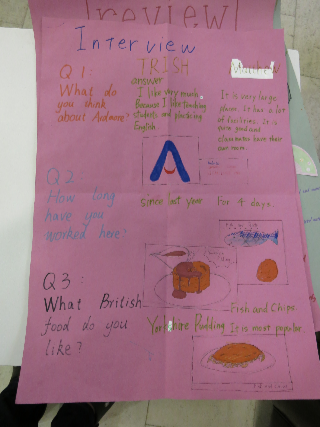 review
Interview
TRISH
Matthew
Q1:
What do
you think
about Audmore?
answer
I like very much.
Because I like teaching
students and practicing
English.
It is very large
place. It has a lot
of facilities. It is
very good and
classmates have their
own room.
Q2
How long
have you
worked here?
since last year
For 4 days.
Q3:
What British
food do you
like?
Yorkshire Pudding
Fish and Chips.
It is most popular.